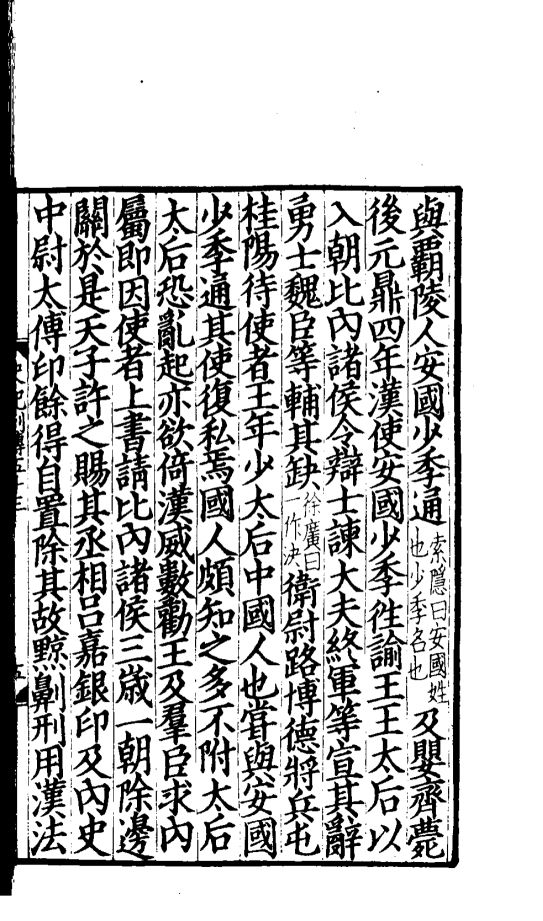 與覇陵人安國少季通索隱曰安國姓也少季名也及嬰齊薨
後元鼎四年漢使安國少季徃諭王王太后以
入朝比內諸侯令辯士諫大夫終軍等宣其辭
勇士魏臣等輔其缺徐廣曰一作決衛尉路博德將兵屯
桂陽待使者王年少太后中國人也甞與安國
少季通其使復私焉國人頗知之多不附太后
太后恐亂起亦欲倚漢威數勸王及羣臣求內
屬即因使者上書請比內諸侯三歲一朝除邊
關於是天子許之賜其丞相呂嘉銀印及內史
中尉太傅印餘得自置除其故黥劓刑用漢法
史記列傳五十三
五